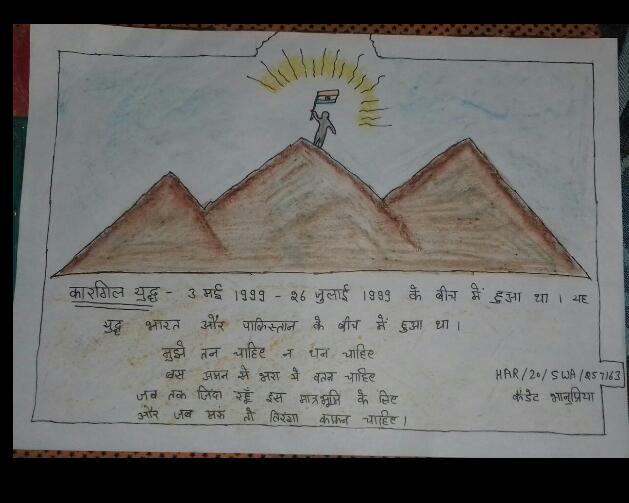 कारगिल युद्ध - 3 मई 1999 - 26 जुलाई 1999 के बीच में हुआ था । यह
युद्ध भारत और पाकिस्तान के बीच में हुआ था ।
मुझे तन चाहिए न धन चाहिए
बस अमन से भरा ये वतन चाहिए
जब तक जिंदा रहूँ इस मात्रभूमि के लिए
और जब मरुं तो तिरंगा कफ़न चाहिए ।
HAR/20/SWA/857163
कैडेट भानुप्रिया